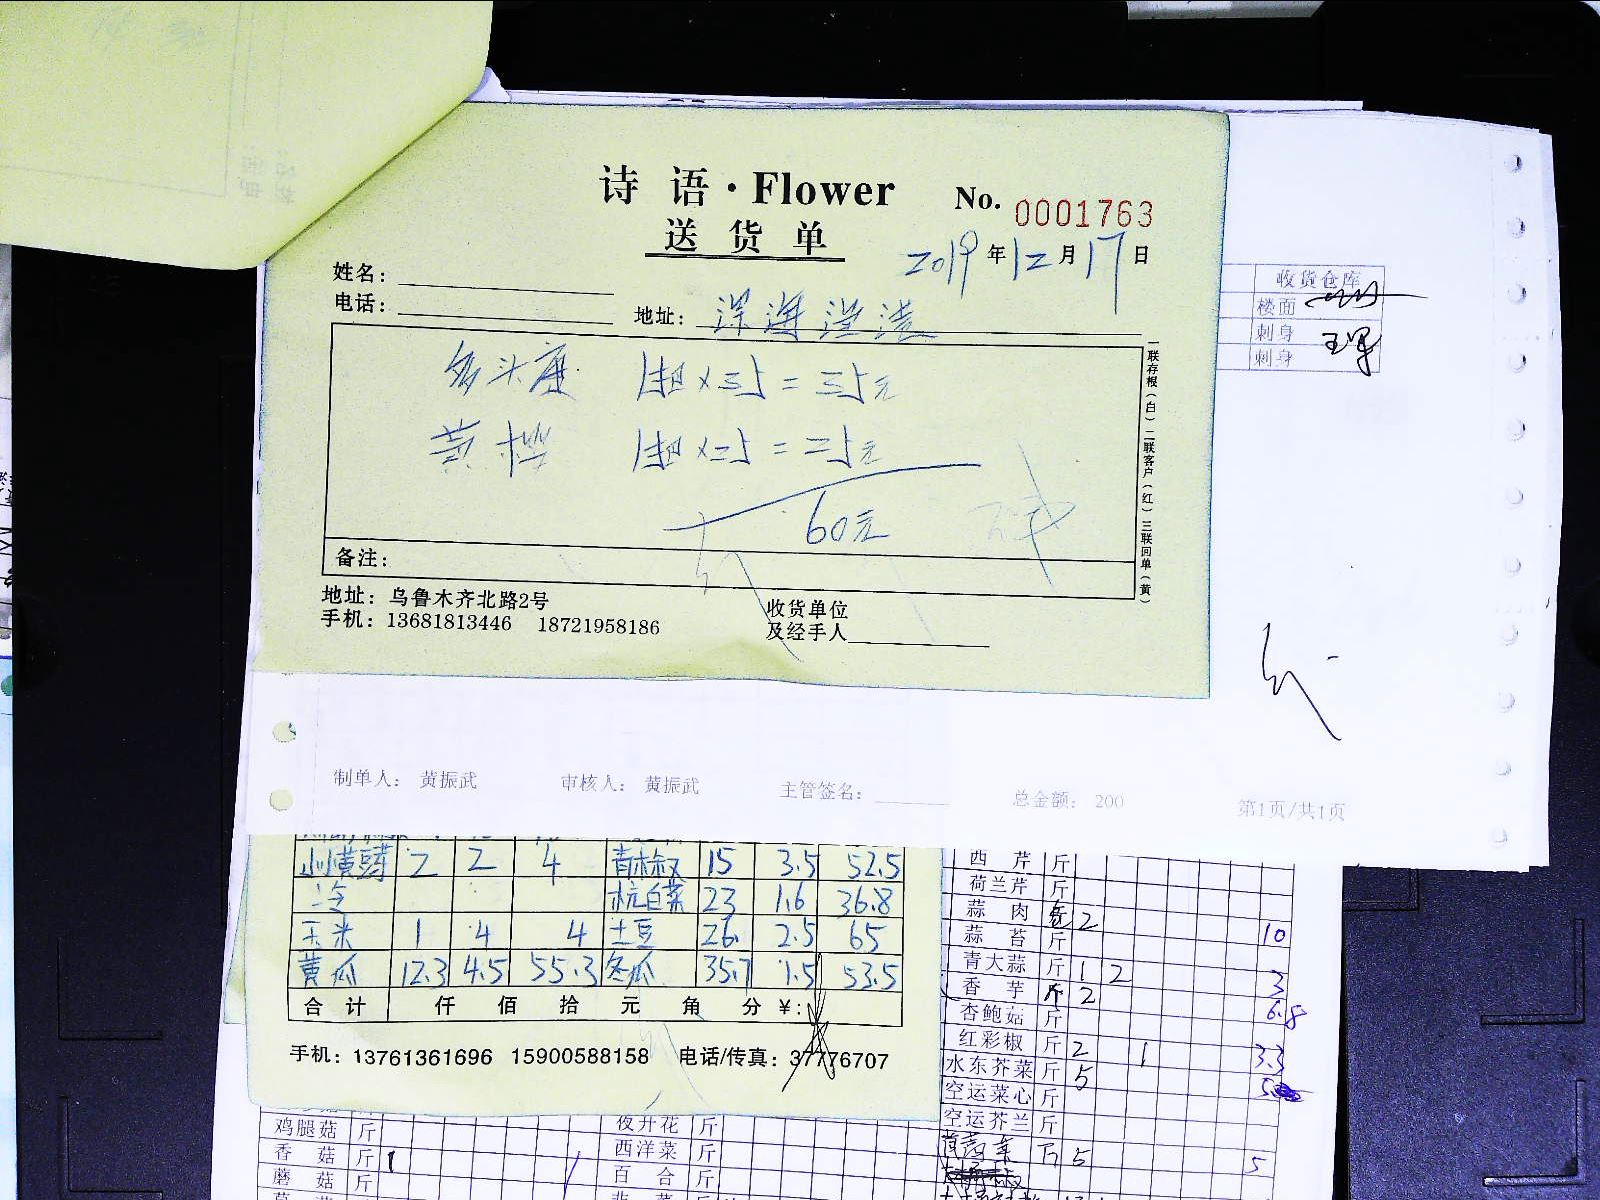 诗语·Flower No. 0001763
送货单
2019年12月17日
姓名:
电话: 地址: 深海
多头 1扎×35=35元
黄 1扎×25=25元
60元
备注:
地址: 乌鲁木齐北路2号
手机: 13681813446 18721958186
收货单位
及经手人
一联存根(白)二联客户(红)三联回单(黄)
收货仓库
楼面
刺身
刺身
制单人: 黄振武 审核人: 黄振武 主管签名: 总金额: 200 第1页/共1页
小黄豆芽 2 2 4 青椒 15 3.5 52.5
杭白菜 23 1.6 36.8
玉米 1 4 4 土豆 26 2.5 65
黄瓜 12.3 4.5 55.3 冬瓜 35.7 1.5 53.5
合计 仟 佰 拾 元 角 分 ¥:
手机: 13761361696 15900588158 电话/传真: 37776707
西芹 斤
荷兰芹 斤
蒜肉 2
蒜苔 斤 10
青大蒜 斤 1 2
香芋 2 3
杏鲍菇 斤 6.8
红彩椒 斤 2 1
水东芥菜 斤 5 3.3
空运菜心 斤
空运芥兰 斤
5 5
鸡腿菇 斤
香菇 斤 1
蘑菇 斤
夜开花 斤
西洋菜 斤
百合 斤